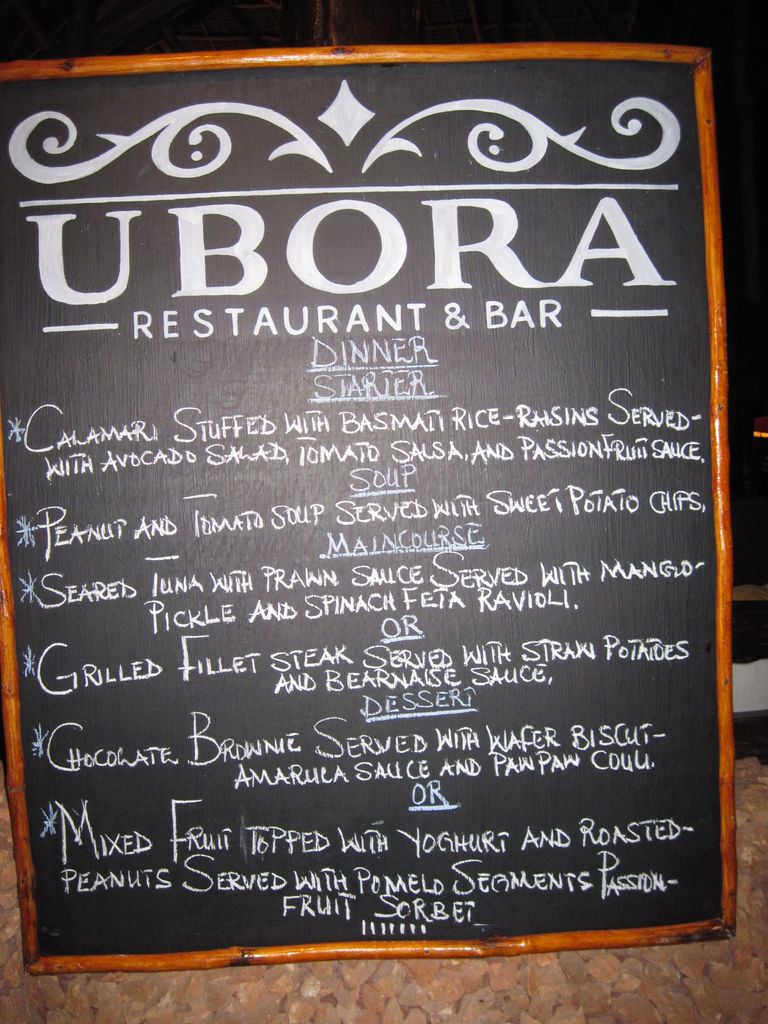 UBORA
RESTAURANT & BAR
DINNER
STARTER
* CALAMARI STUFFED WITH BASMATI RICE-RAISINS SERVED-
WITH AVOCADO SALAD, TOMATO SALSA, AND PASSIONFRUIT SAUCE.
SOUP
* PEANUT AND TOMATO SOUP SERVED WITH SWEET POTATO CHIPS.
MAINCOURSE
* SEARED TUNA WITH PRAWN SAUCE SERVED WITH MANGO-
PICKLE AND SPINACH FETA RAVIOLI.
OR
* GRILLED FILLET STEAK SERVED WITH STRAW POTATOES
AND BEARNAISE SAUCE.
DESSERT
* CHOCOLATE BROWNIE SERVED WITH WAFER BISCUT-
AMARULA SAUCE AND PAWPAW COULI.
OR
* MIXED FRUIT TOPPED WITH YOGHURT AND ROASTED-
PEANUTS SERVED WITH POMELO SEGMENTS PASSION-
FRUIT SORBET